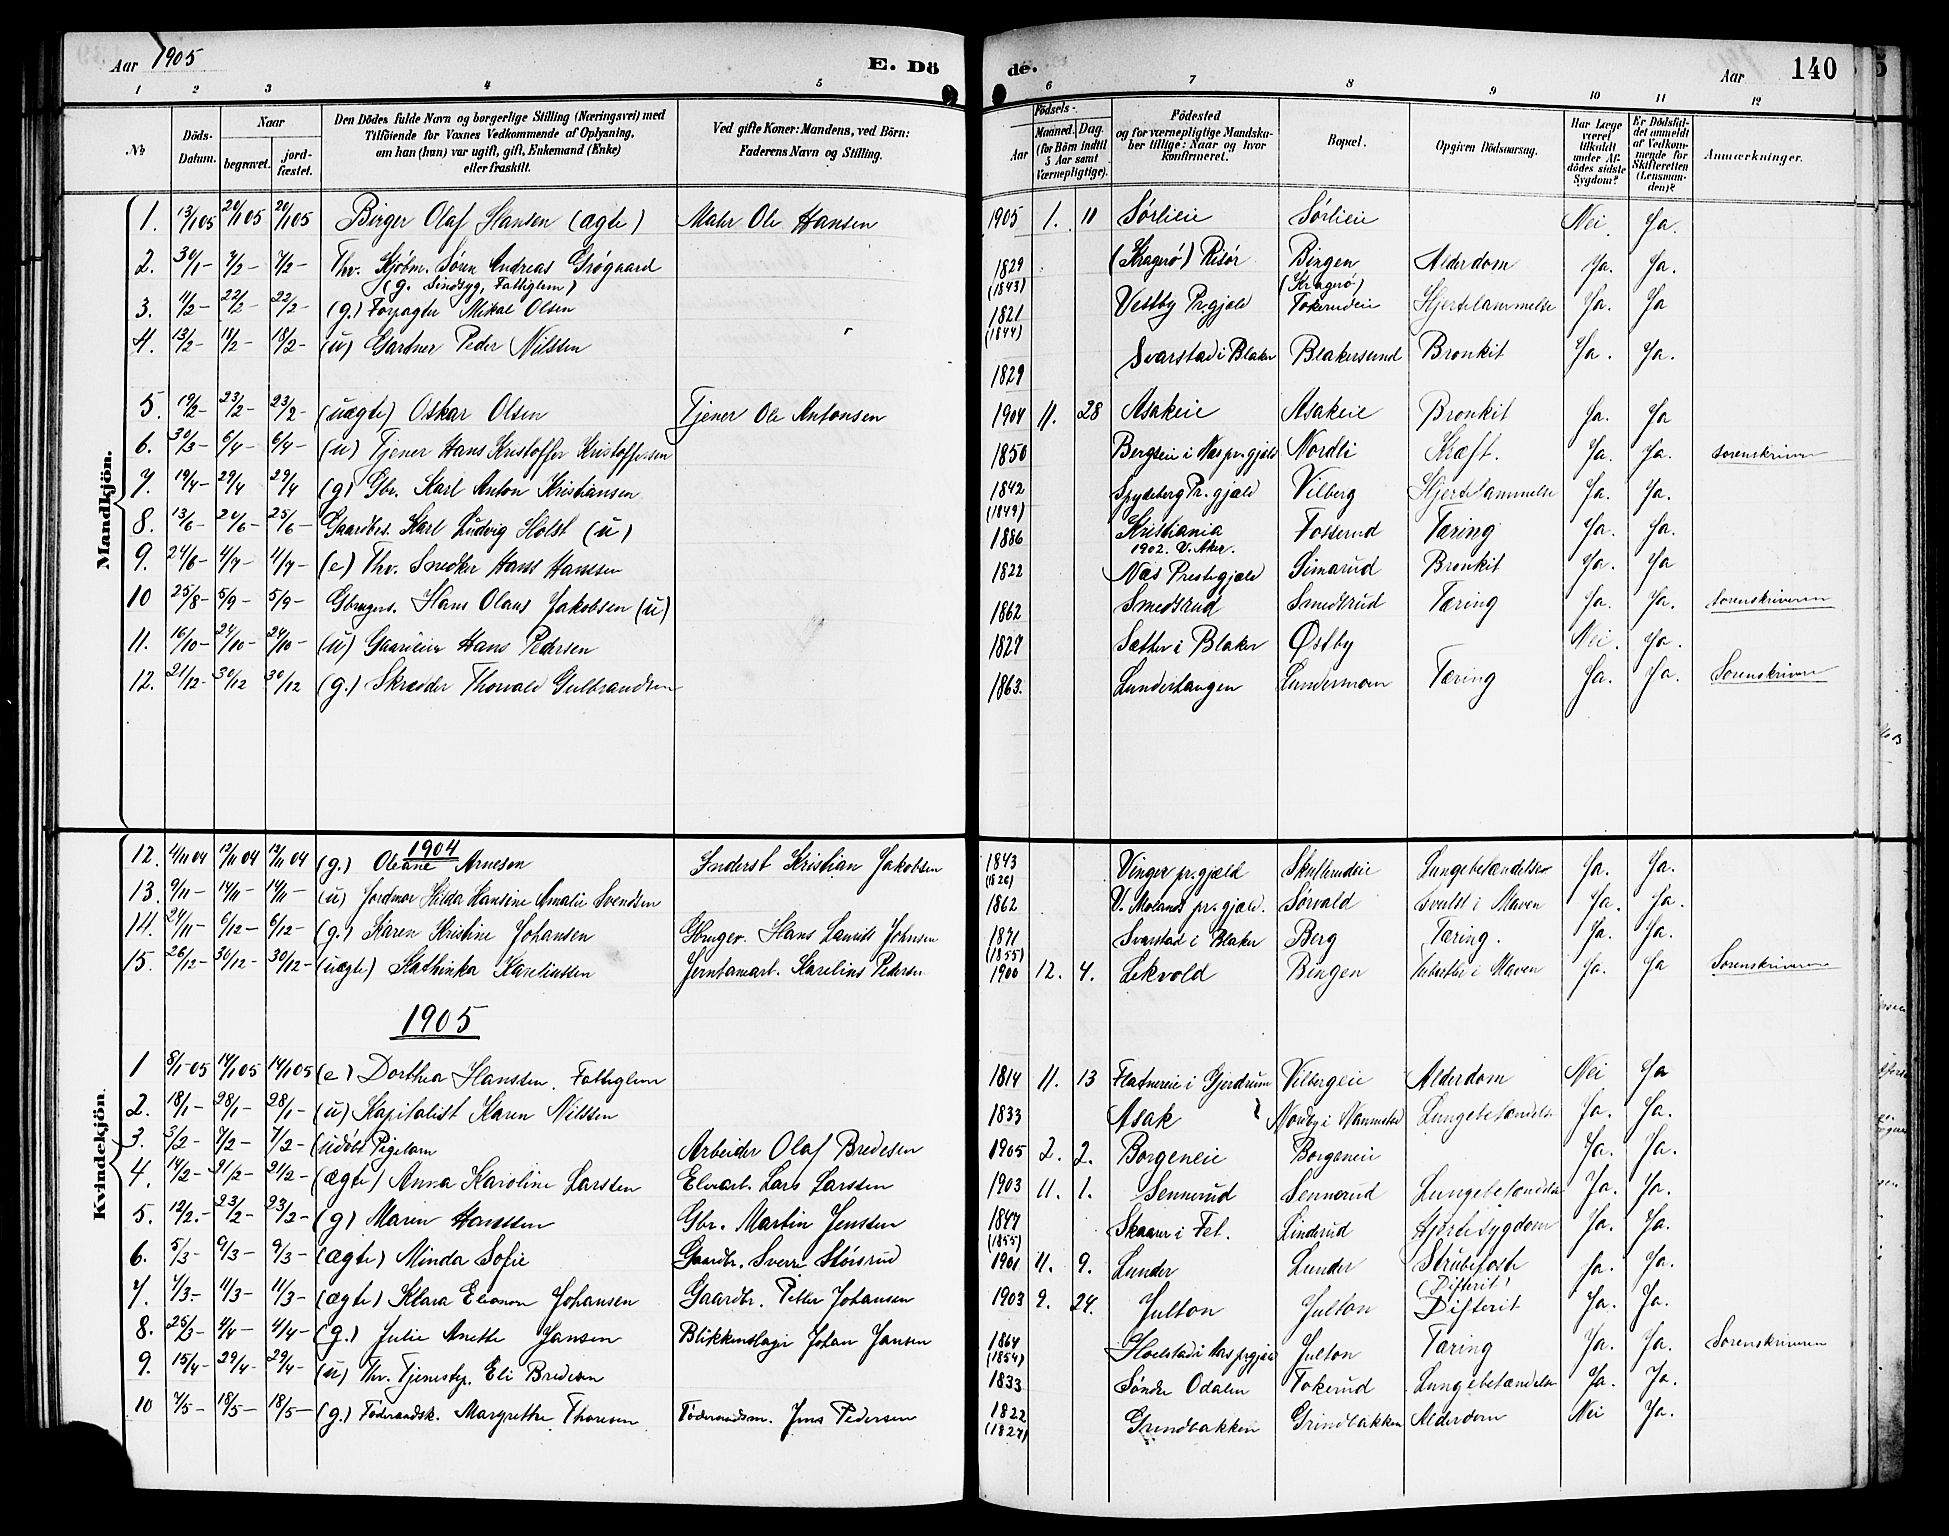 Aar 1905
E. Dö
de.
Aar 140
1 2 3 4 5 6 7 8 9 10 11 12
No
Döds-Datum.
Naar
begravet.
jord-fæstet.
Den Dödes fulde Navn og borgerlige Stilling (Næringsvei) med
Tilföiende for Voxnes Vedkommende af Oplysning,
om han (hun) var ugift, gift, Enkemand (Enke)
eller fraskilt.
Ved gifte Koner: Mandens, ved Börn:
Faderens Navn og Stilling.
Födsels-
Aar
Maaned. Dag.
(for Börn indtil
5 Aar samt
Værnepligtige).
Födested
og for værnepligtige Mandska-
ber tillige: Naar og hvor
konfirmeret.
Bopæl.
Opgiven Dödsaarsag.
Har Læge
været
tilkaldt
under Af-
dödes sidste
Sygdom?
Er Dödsfal-
det anmeldt
af Vedkom-
mende for
Skifteretten
(Lensman-
den)?
Anmærkninger.
Mandkjön.
1. 13/1 05 20/1 05 20/1 05 Birger Olaf Hansen (ægte) Maler Ole Hansen 1905 1. 11 Sørlieie Sørlieie Nei. Ja.
2. 30/1 - 7/2 - 7/2 - Thv. Kjöbm. Søren Andreas Grøgaard 1829 (Kragerø) Risør Bingen Alderdom Ja. Ja.
(g. Sindsyg, Fattiglem) (1843) (Kragerø)
3. 11/2 - 22/2 - 22/2 - (g.) Forpagter Mikal Olsen 1821 Vestby Pr.gjæld Tokerudeie Hjertelammelse Ja. Ja
(1844)
4. 13/2 - 18/2 - 18/2 - (u) Gartner Peder Nilssen 1829 Svarstad i Blaker Blakersund Bronkit Ja. Ja.
5. 19/2 - 23/2 - 23/2 - (uægte) Oskar Olsen Tjener Ole Antonsen 1904 11. 28 Asakeie Asakeie Bronkit Ja. Ja
6. 30/3 - 6/4 - 6/4 - (u) Tjener Hans Kristoffer Kristoffersen 1850 Bergseie i Næs pr.gjæld Nordli Kræft. Ja. Ja. Sorenskriveren
7. 19/4 - 29/4 29/4 (g) Gbr. Karl Anton Kristiansen 1842 Spydeberg Pr.gjæld Vilberg Hjertelammelse Ja. Ja.
(1849)
8. 13/6 - 20/6 - 25/6 - Gaardbes. Karl Ludvig Holst (u) 1886 Kristiania Fosserud Tæring Ja. Ja.
1902. V. Aker.
9. 24/6 - 4/7 - 4/7 - (e) Thv. Snedker Hans Hanssen 1822 Næs Prestegjæld Simarud Bronkit Ja. Ja
10 25/8 - 5/9 - 5/9 - Gbrugers. Hans Olaus Jakobsen (u) 1862 Smedsrud Smedsrud Tæring Ja. Ja. Sorenskriveren
11. 16/10 - 24/10 - 24/10 - (u) Gaardeier Hans Pedersen 1829 Sætter i Blaker Østby Nei. Ja.
12. 21/12 - 30/12 30/12 (g.) Skrædder Thorvald Gulbrandsen 1863. Lunderhaugen Lundermoen Tæring Ja. Ja. Sorenskriveren
Kvindekjön.
1904
12. 4/11 04 12/11 04 12/11 04 (g.) Oleane Arnesen Inderst Kristian Jakobsen 1843 Vinger pr.gjæld Skullerudeie Lungebetændelse Ja. Ja.
13. 9/11 - 14/11 - 14/11 - (u) Jordmor Hilda Hansine Amalie Svendsen 1862 V. Molands pr.gjæld. Sørvald Svulst i Maven Ja. Ja.
14. 24/11 - 6/12 - 6/12 - (g.) Karen Kristine Johansen Gbruger. Hans Laurits Johnsen 1871 Svarstad i Blaker Berg Tæring. Ja. Ja.
(1855)
15. 26/12 - 30/12 - 30/12 - (uægte) Kathinka Karelinssen Jerntamarb. Karelius Pedersen 1900 12. 4. Lekvold Bingen Tuberkler i Maven Ja. Ja Sorenskriveren
1905
1 8/1 - 05 14/1 05 14/1 05 (e) Dorthea Hanssen. Fattiglem 1814 11. 13 Flatnereie i Gjerdrum Vilbergeie Alderdom Nei Ja
2. 18/1 - 28/1 - 28/1 - (u) Kapitalist Karen Nilssen 1833 Asak Nordby i Nannestad Lungebetændelse Ja. Ja.
3. 3/2 - 7/2 - 7/2 - (udöbt Pigebarn Arbeider Olaf Bredesen 1905 2. 2. Borgeneie Borgeneie Ja. Ja.
4. 14/2 - 21/2 - 21/2 - (ægte) Anna Karoline Larssen Elvearb. Lars Larssen 1903 11. 1. Sennerud Sennerud Lungebetændelse Ja. Ja.
5. 12/2. - 23/2 - 23/2 - (g) Maren Hanssen Gbr. Martin Jenssen 1847 Skaarer i Fet. Linderud Hjertesygdom Ja. Ja.
(1855)
6. 5/3 - 9/3 - 9/3 - (ægte) Minda Sofie Gaardbr. Sverre Störsrud 1901 11. 9. Lunder Lunder Strubehoste Ja. Ja.
(Difterit)
7. 7/3. - 11/3 - 11/3 - (ægte) Klara Eleonora Johansen Gaardbr. Petter Johansen 1903 9. 24. Julton Julton Difterit Ja. Ja.
8. 25/3 - 4/4 - 4/4 - (g.) Julie Anette Jansen Blikkenslager Johan Jansen 1864 Hvelstad i Næs pr.gjæld Julton Tæring Ja. Ja. Sorenskriveren
(1854)
9. 15/4 - 29/4 - 29/4 - (u) Thv. Tjenestep. Eli Bredesen 1833 Søndre Odalen Tokerud Lungebetændelse Ja. Ja.
10 7/5 - 18/5 - 18/5 - (g.) Föderaadsk. Margrethe Thoresen Föderaadsm. Jens Pedersen 1822 Grindbakken Grindbakken Alderdom Nei Ja.
(1827)